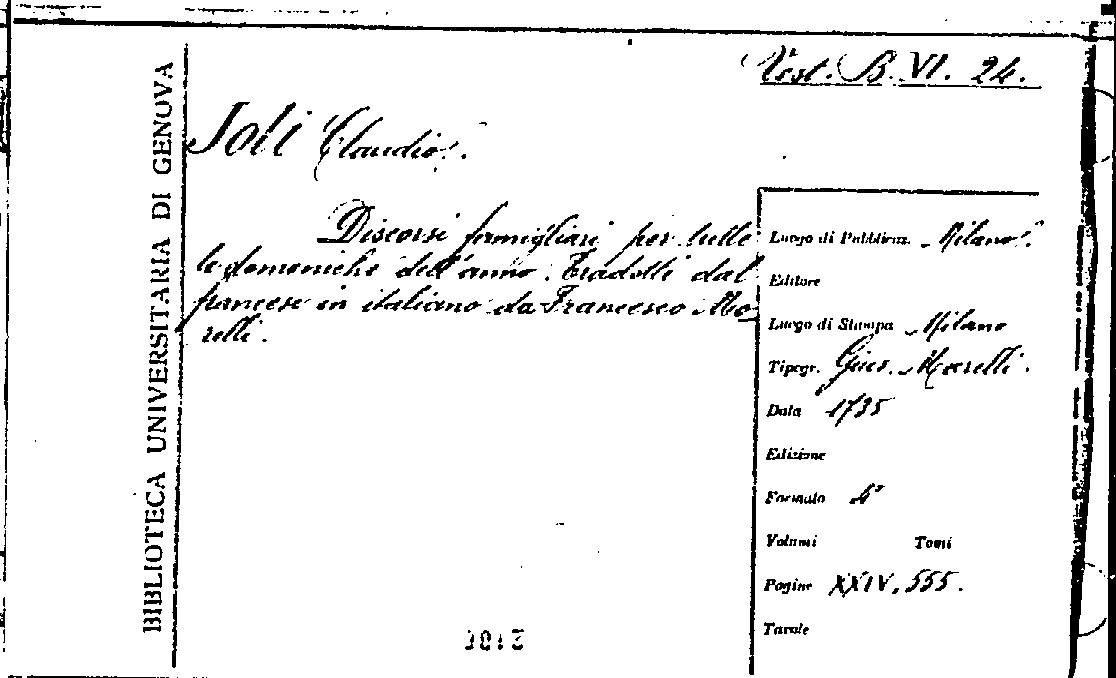 Vest. B. VI. 24.
BIBLIOTECA UNIVERSITARIA DI GENOVA
Joli Claudio.
Discorsi famigliari per tutte
le domeniche dell'anno. Tradotti dal
francese in italiano da Francesco Mo-
relli.
Luogo di Pubblicaz. Milano.
Editore
Luogo di Stampa Milano
Tipogr. Gius. Marelli.
Data 1735
Edizione
Formato 4°
Volumi Tomi
Pagine XXIV, 555.
Tavole